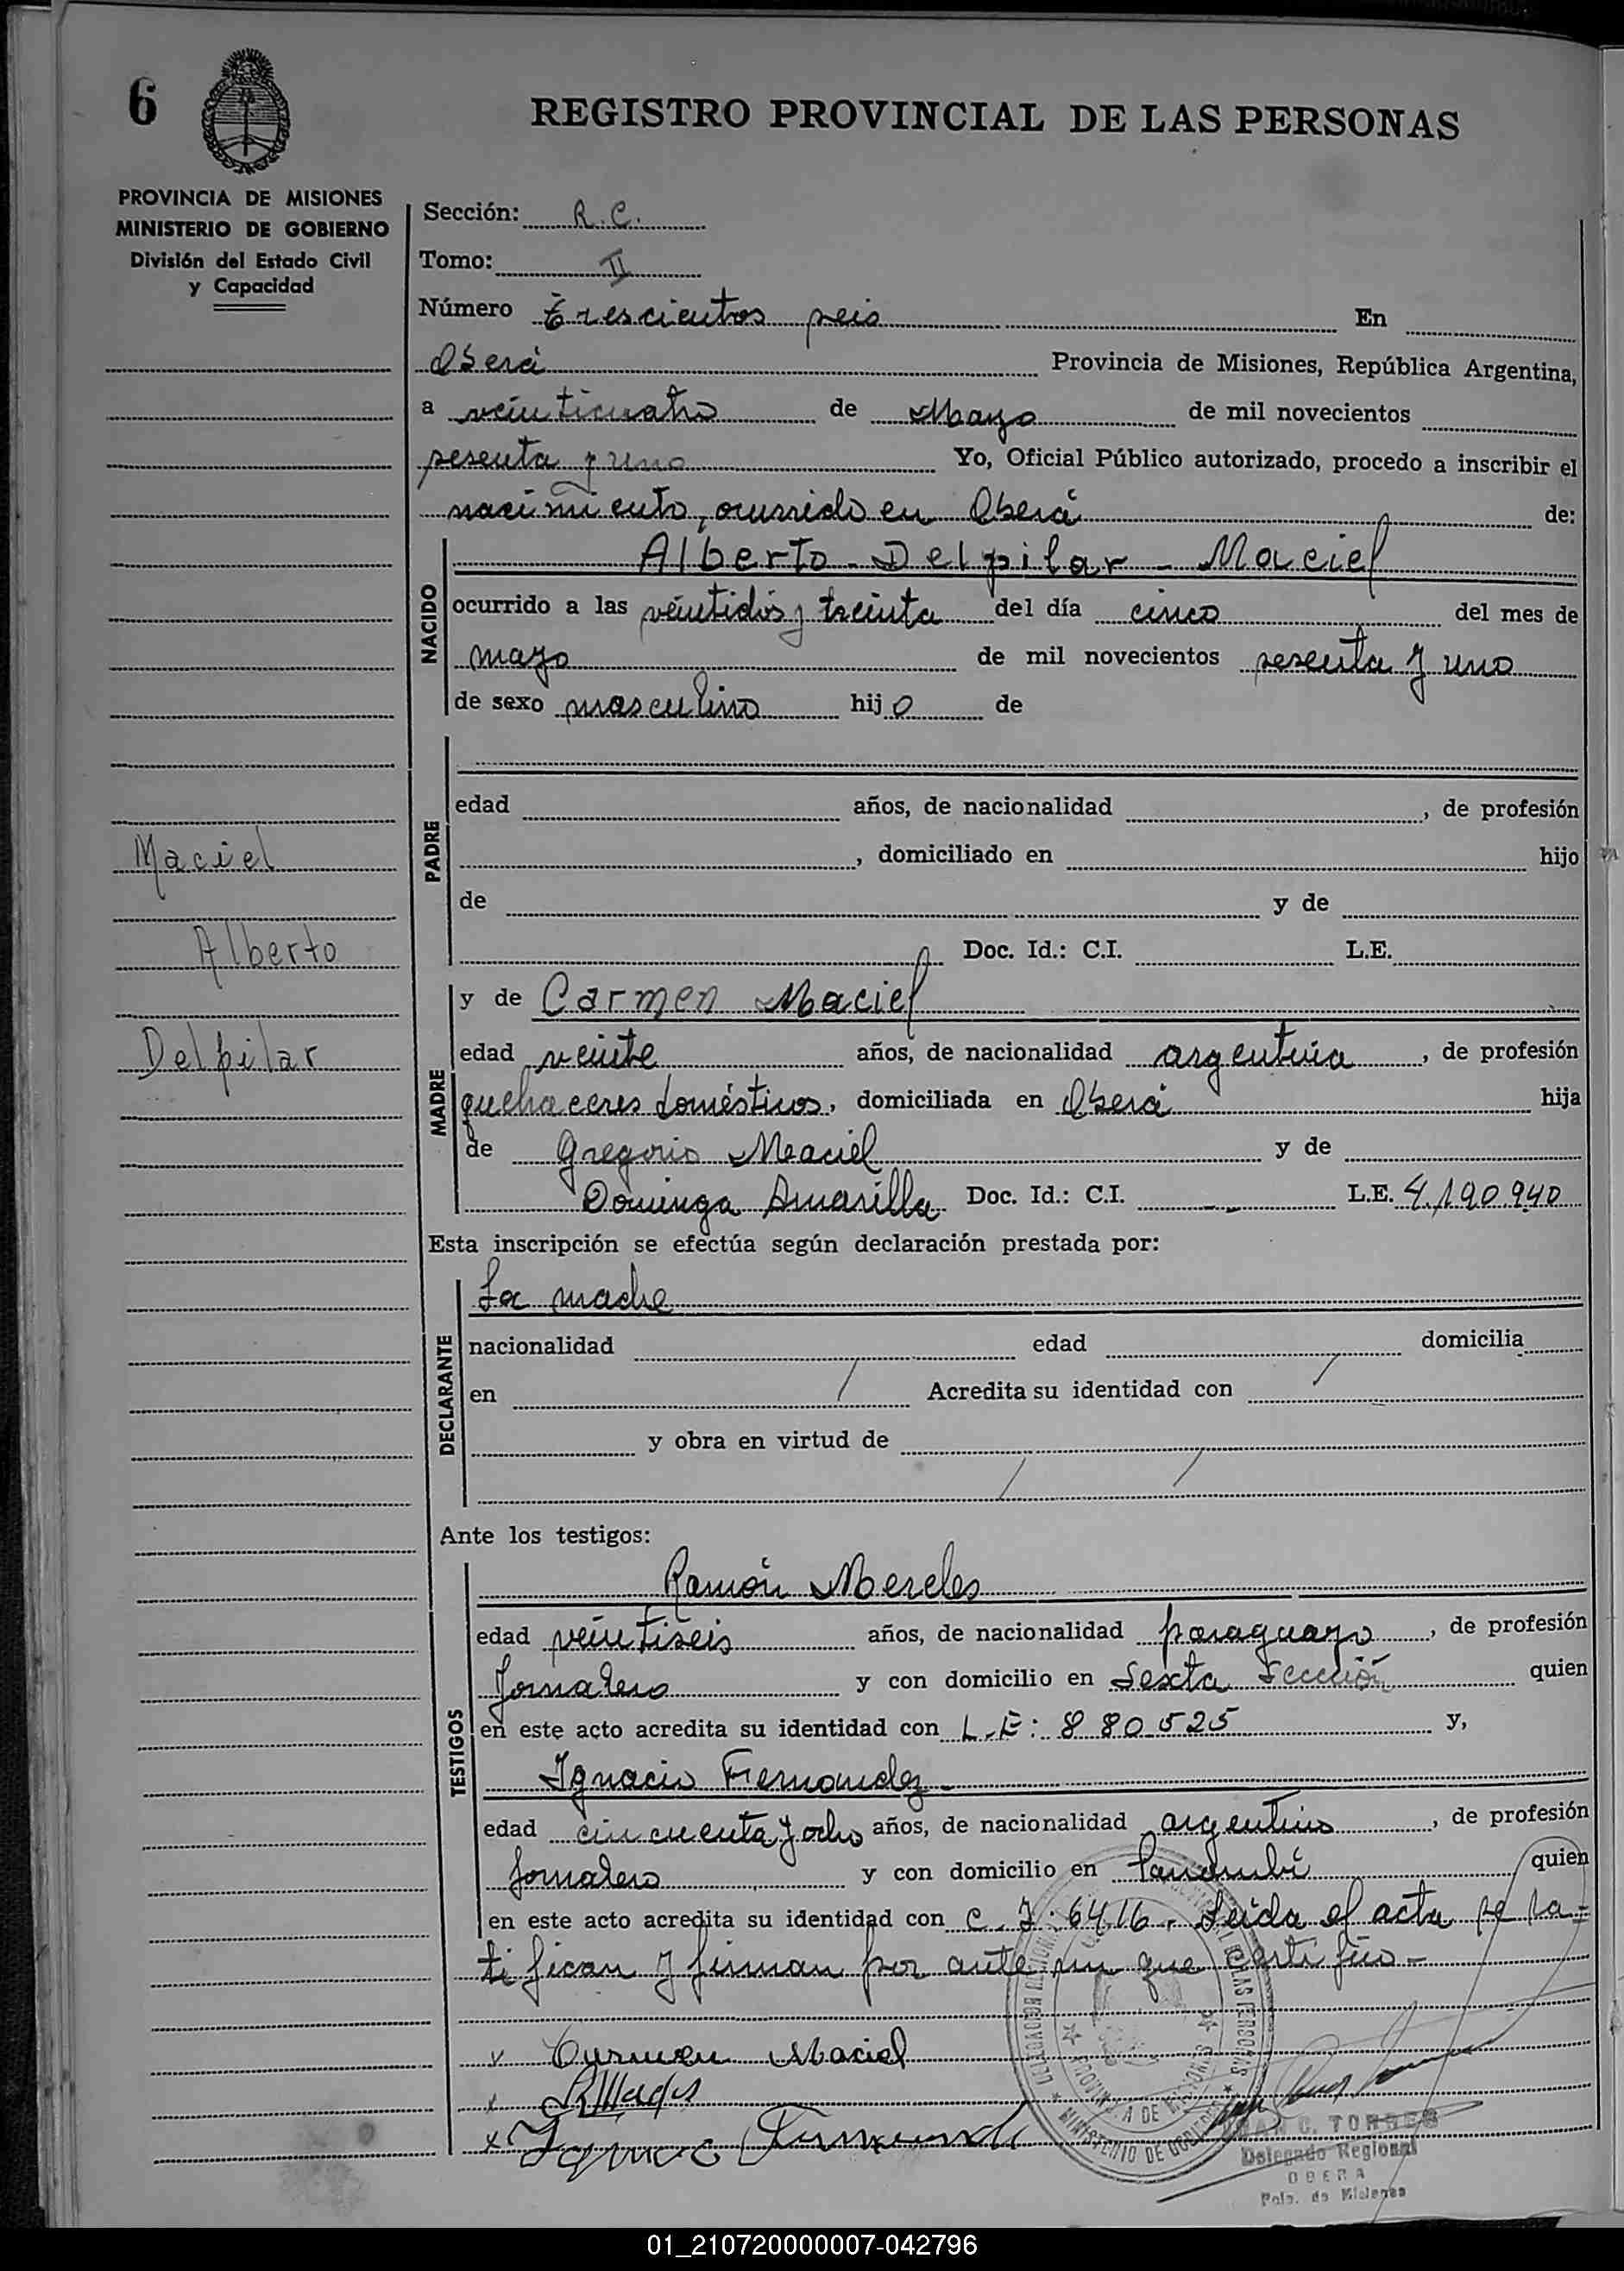 6
REGISTRO PROVINCIAL DE LAS PERSONAS
PROVINCIA DE MISIONES
MINISTERIO DE GOBIERNO
División del Estado Civil
y Capacidad
Sección: R.C.
Tomo: II
Número Trescientos seis En
Oberá Provincia de Misiones, República Argentina,
a veinticuatro de Mayo de mil novecientos
sesenta y uno Yo, Oficial Público autorizado, procedo a inscribir el
nacimiento, ocurrido en Oberá de:
NACIDO
Alberto - Delpilar - Maciel
ocurrido a las veintidós y treinta del día cinco del mes de
mayo de mil novecientos sesenta y uno
de sexo masculino hijo de
PADRE
edad años, de nacionalidad , de profesión
, domiciliado en hijo
de y de
Doc. Id.: C.I. L.E.
Maciel
Alberto
Delpilar
MADRE
y de Carmen Maciel
edad veinte años, de nacionalidad argentina, de profesión
quehaceres domésticos, domiciliada en Oberá hija
de Gregorio Maciel y de
Dominga Amarilla Doc. Id.: C.I. -- L.E. 4.190.940
Esta inscripción se efectúa según declaración prestada por:
DECLARANTE
La madre
nacionalidad edad domicilia
en / Acredita su identidad con /
y obra en virtud de
/ /
Ante los testigos:
TESTIGOS
Ramón Mereles
edad veintiseis años, de nacionalidad paraguayo, de profesión
Jornalero y con domicilio en Sexta Sección quien
en este acto acredita su identidad con L.E: 880525 y,
Ignacio Fernandez -
edad cincuenta y ocho años, de nacionalidad argentino, de profesión
Jornalero y con domicilio en quien
en este acto acredita su identidad con C.I: 6416. Leida el acta se ra=
tifican y firman por ante mi que certifico -
v Carmen Maciel
x
x Ignacio
MINISTERIO DE GOBIERNO
PROVINCIA DE MISIONES
C. TORRES
Delegado Regional
OBERA
Pcia. de Misiones
01_210720000007-042796